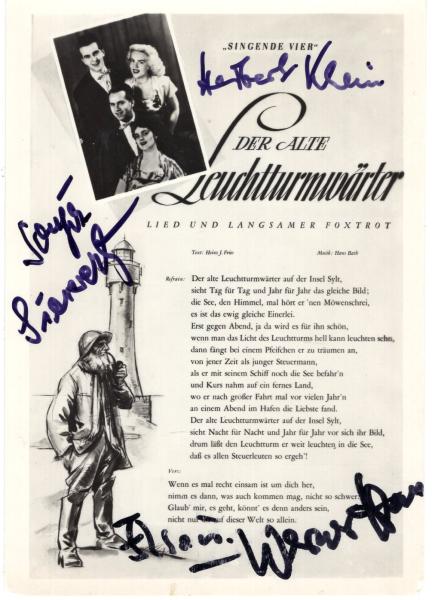 "SINGENDE VIER"
Herbert Klein
DER ALTE
Leuchtturmwärter
LIED UND LANGSAMER FOXTROT
Text: Heinz J. Fries Musik: Hans Bath
Sonja
Siewert
Refrain: Der alte Leuchtturmwärter auf der Insel Sylt,
sieht Tag für Tag und Jahr für Jahr das gleiche Bild;
die See, den Himmel, mal hört er 'nen Möwenschrei,
es ist das ewig gleiche Einerlei.
Erst gegen Abend, ja da wird es für ihn schön,
wenn man das Licht des Leuchtturms hell kann leuchten sehn,
dann fängt bei einem Pfeifchen er zu träumen an,
von jener Zeit als junger Steuermann,
als er mit seinem Schiff noch die See befahr'n
und Kurs nahm auf ein fernes Land,
wo er nach großer Fahrt mal vor vielen Jahr'n
an einem Abend im Hafen die Liebste fand.
Der alte Leuchtturmwärter auf der Insel Sylt,
sieht Nacht für Nacht und Jahr für Jahr vor sich ihr Bild,
drum läßt den Leuchtturm er weit leuchten in die See,
daß es allen Steuerleuten so ergeh'!
Vers:
Wenn es mal recht einsam ist um dich her,
nimm es dann, was auch kommen mag, nicht so schwer.
Glaub' mir, es geht, könnt' es denn anders sein,
nicht nur dir auf dieser Welt so allein.
Werner